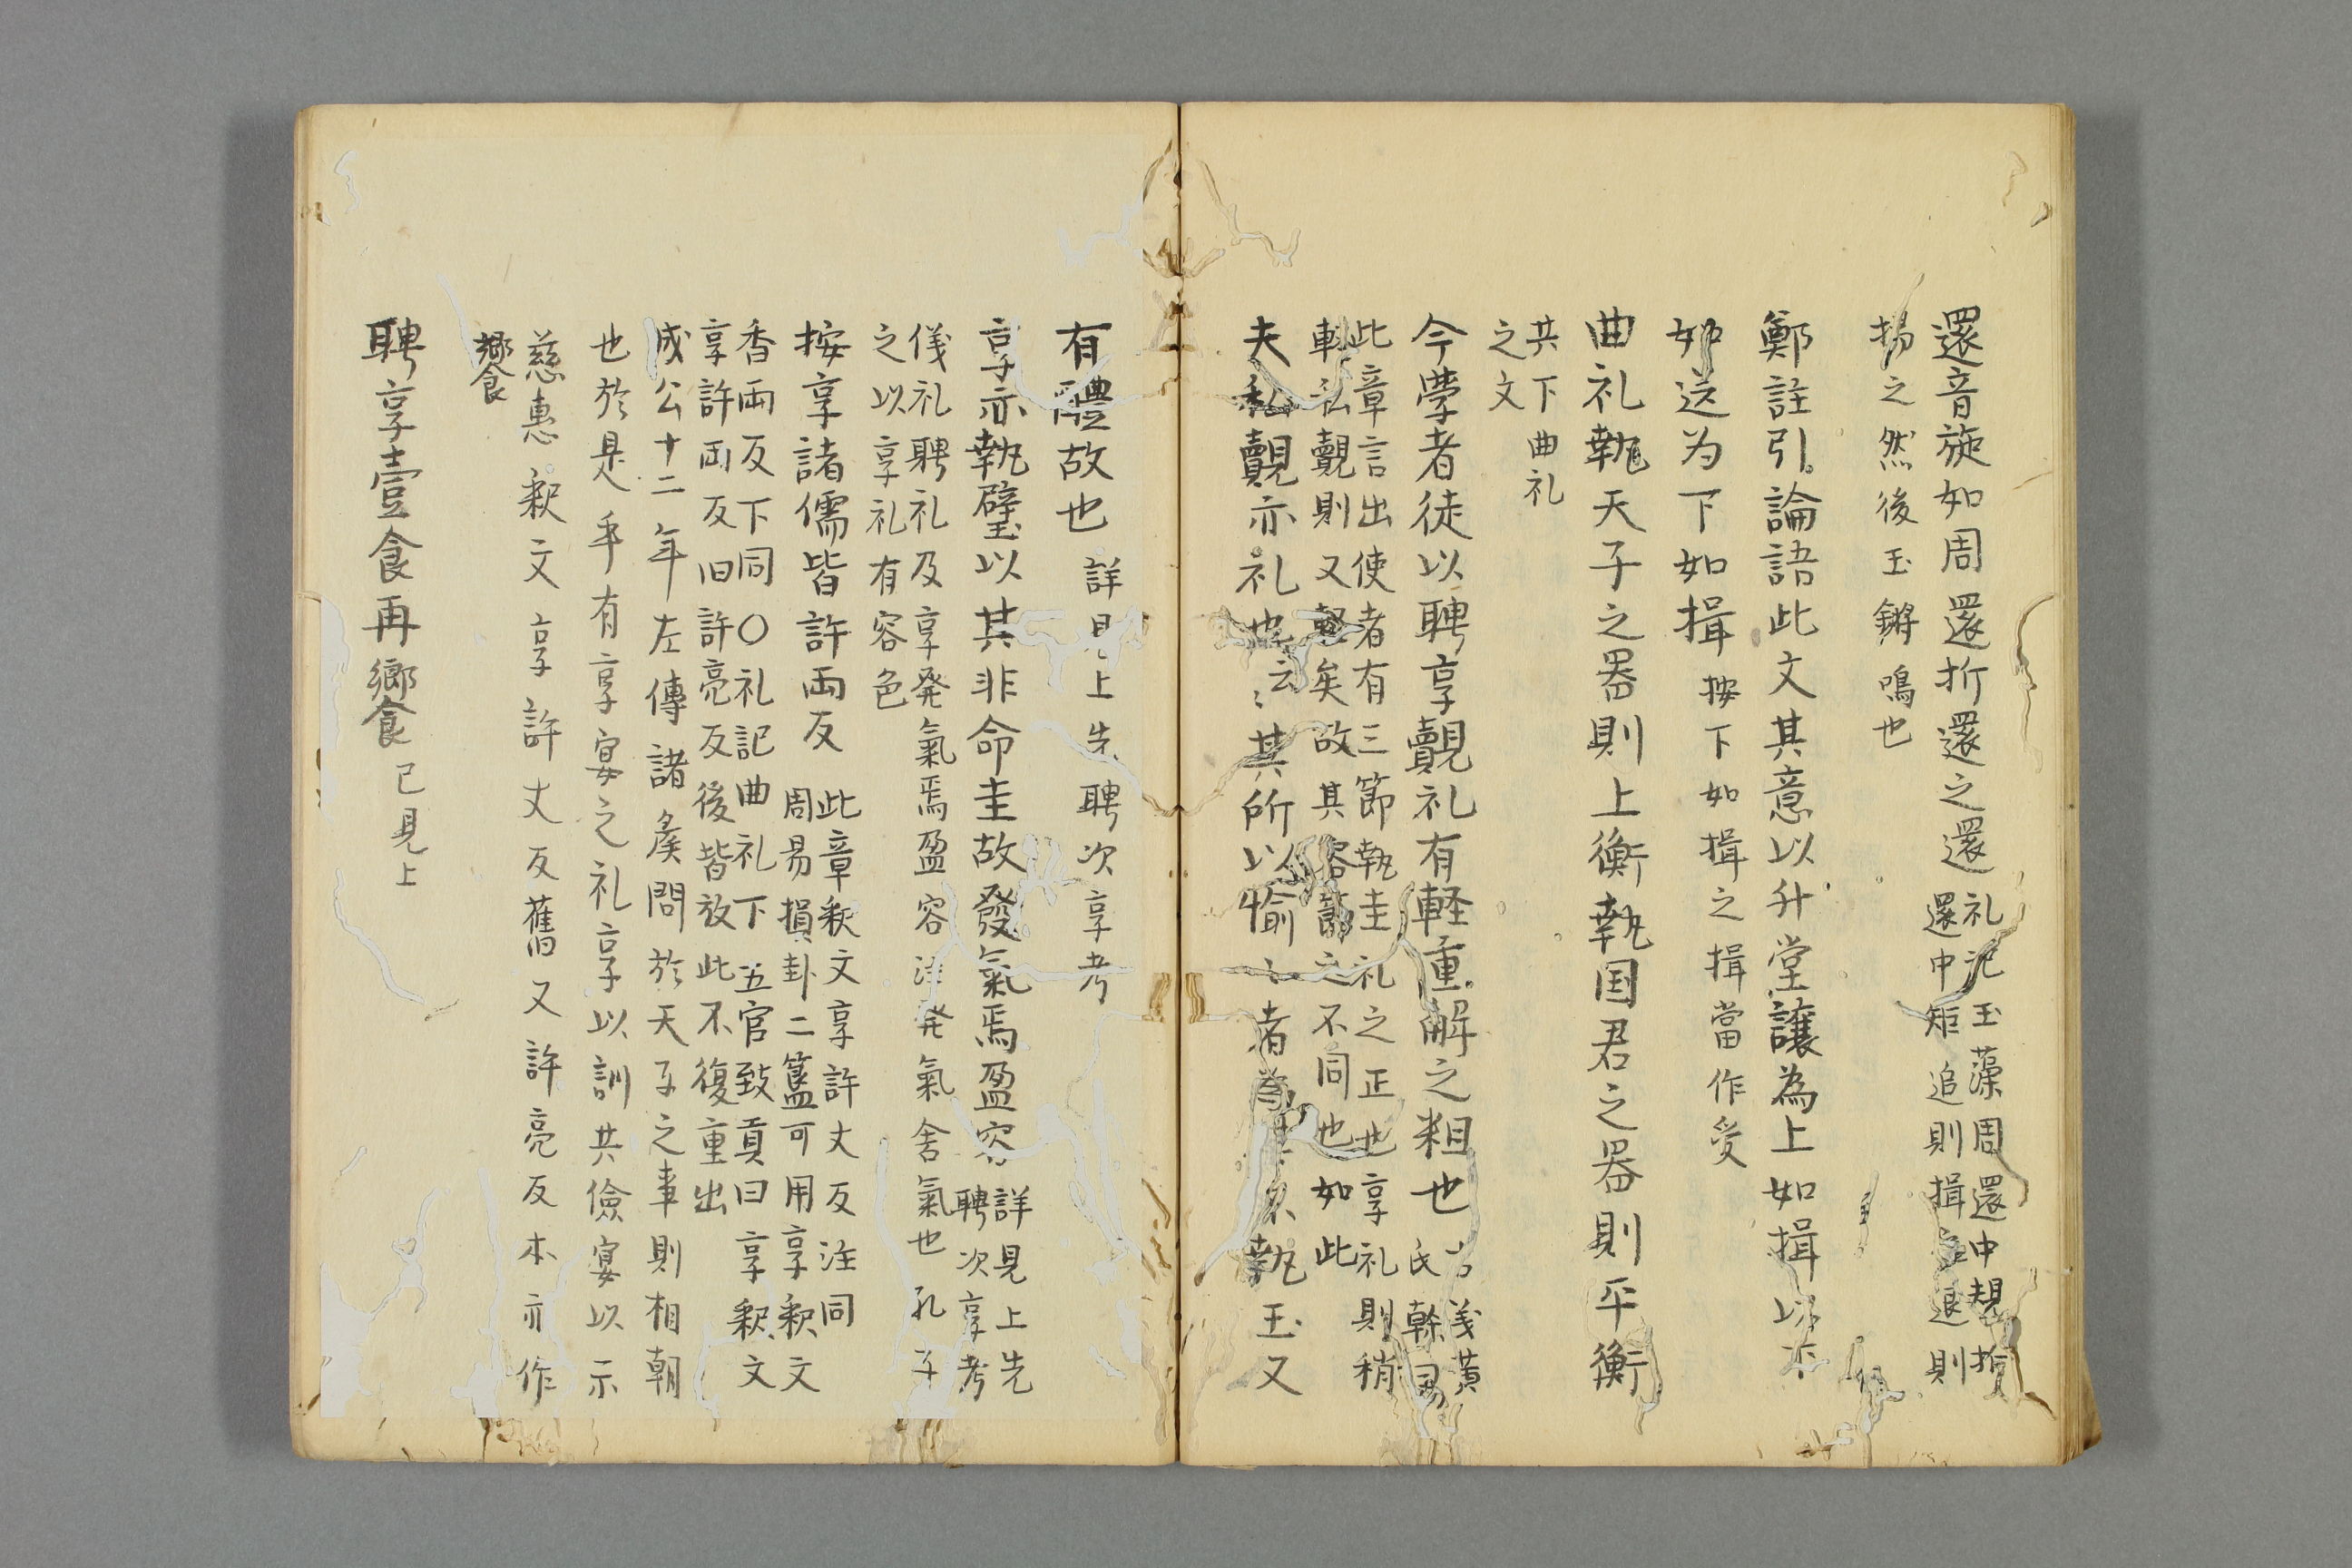 還音旋如周還折還之還
礼記玉藻周還中規折
還中矩追則揖退則
揚之然後玉鏘鳴也
鄭註引論語此文其意以升堂讓為上如揖以
如送为下如揖
按下如揖之揖當作受
曲礼執天子之器則上衡執国君之器則平衡
共下曲礼
之文
今學者徒以聘享覿礼有軽重解之粗也
義黄
氏幹
此章言出使者有三節執圭礼之正也享礼則稍
軽私覿則又軽矣故其容節之不同也如此
夫私覿亦礼也云〻其所以愉〻者為其不執玉又
有醴故也
詳見上先聘次享考
享亦執璧以其非命圭故發氣焉盈容
詳見上先
聘次享考
儀礼聘礼及享発氣焉盈容注発氣舍氣也孔子
之以享礼有容色
按享諸儒皆許両反
此章釈文享許丈反注同
周易損卦二簋可用享釈文
香両反下同〇礼記曲礼下五官致貢曰享釈文
享許両反旧許亮反後皆放此不復重出
成公十二年左傳諸矦間於天子之事則相朝
也於是乎有享宴之礼享以訓共儉宴以示
慈惠釈文享許丈反舊又許亮反本亦作
饗
聘享壹食再饗
已見上